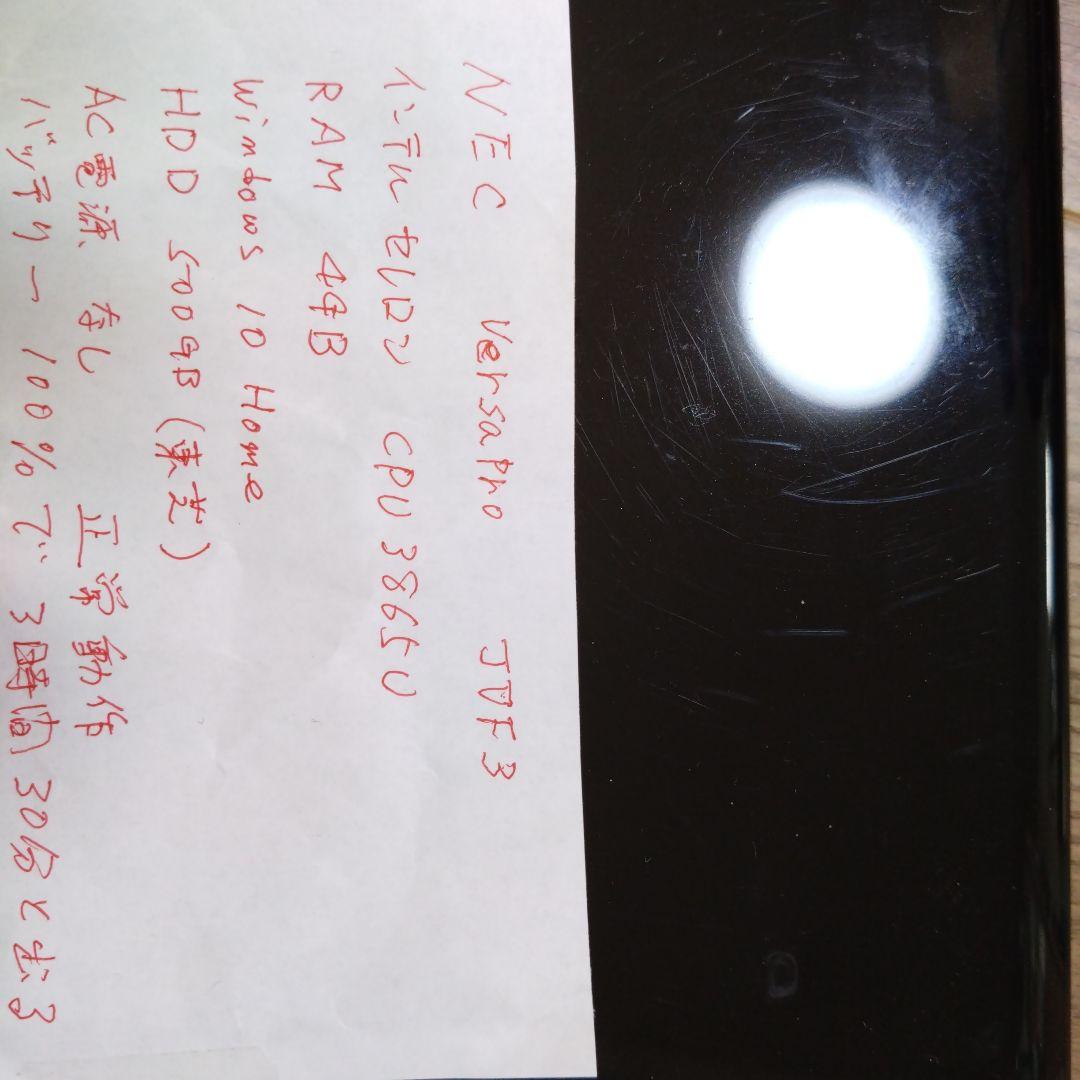 NEC VersaPro JVF3
インテル セレロン CPU 3865U
RAM 4GB
Windows 10 Home
HDD 500GB (東芝)
AC電源 なし 正常動作
バッテリー 100%で 3時間30分と出る